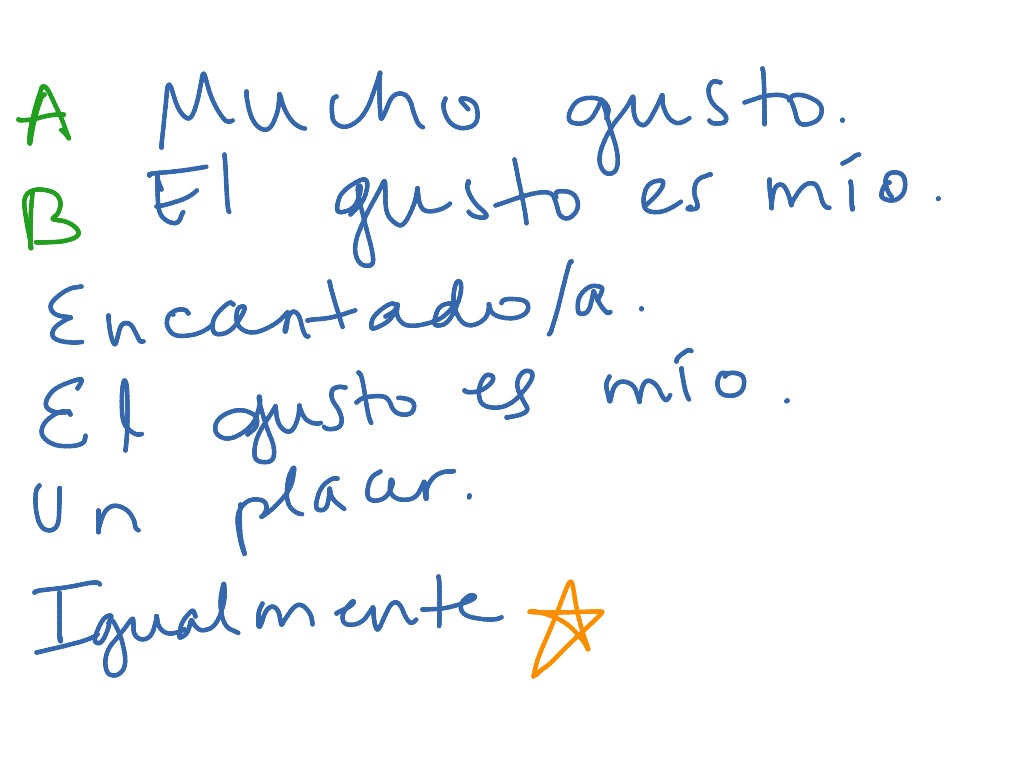 A Mucho gusto.
B El gusto es mío.
Encantado/a.
El gusto es mío.
Un placer.
Igualmente